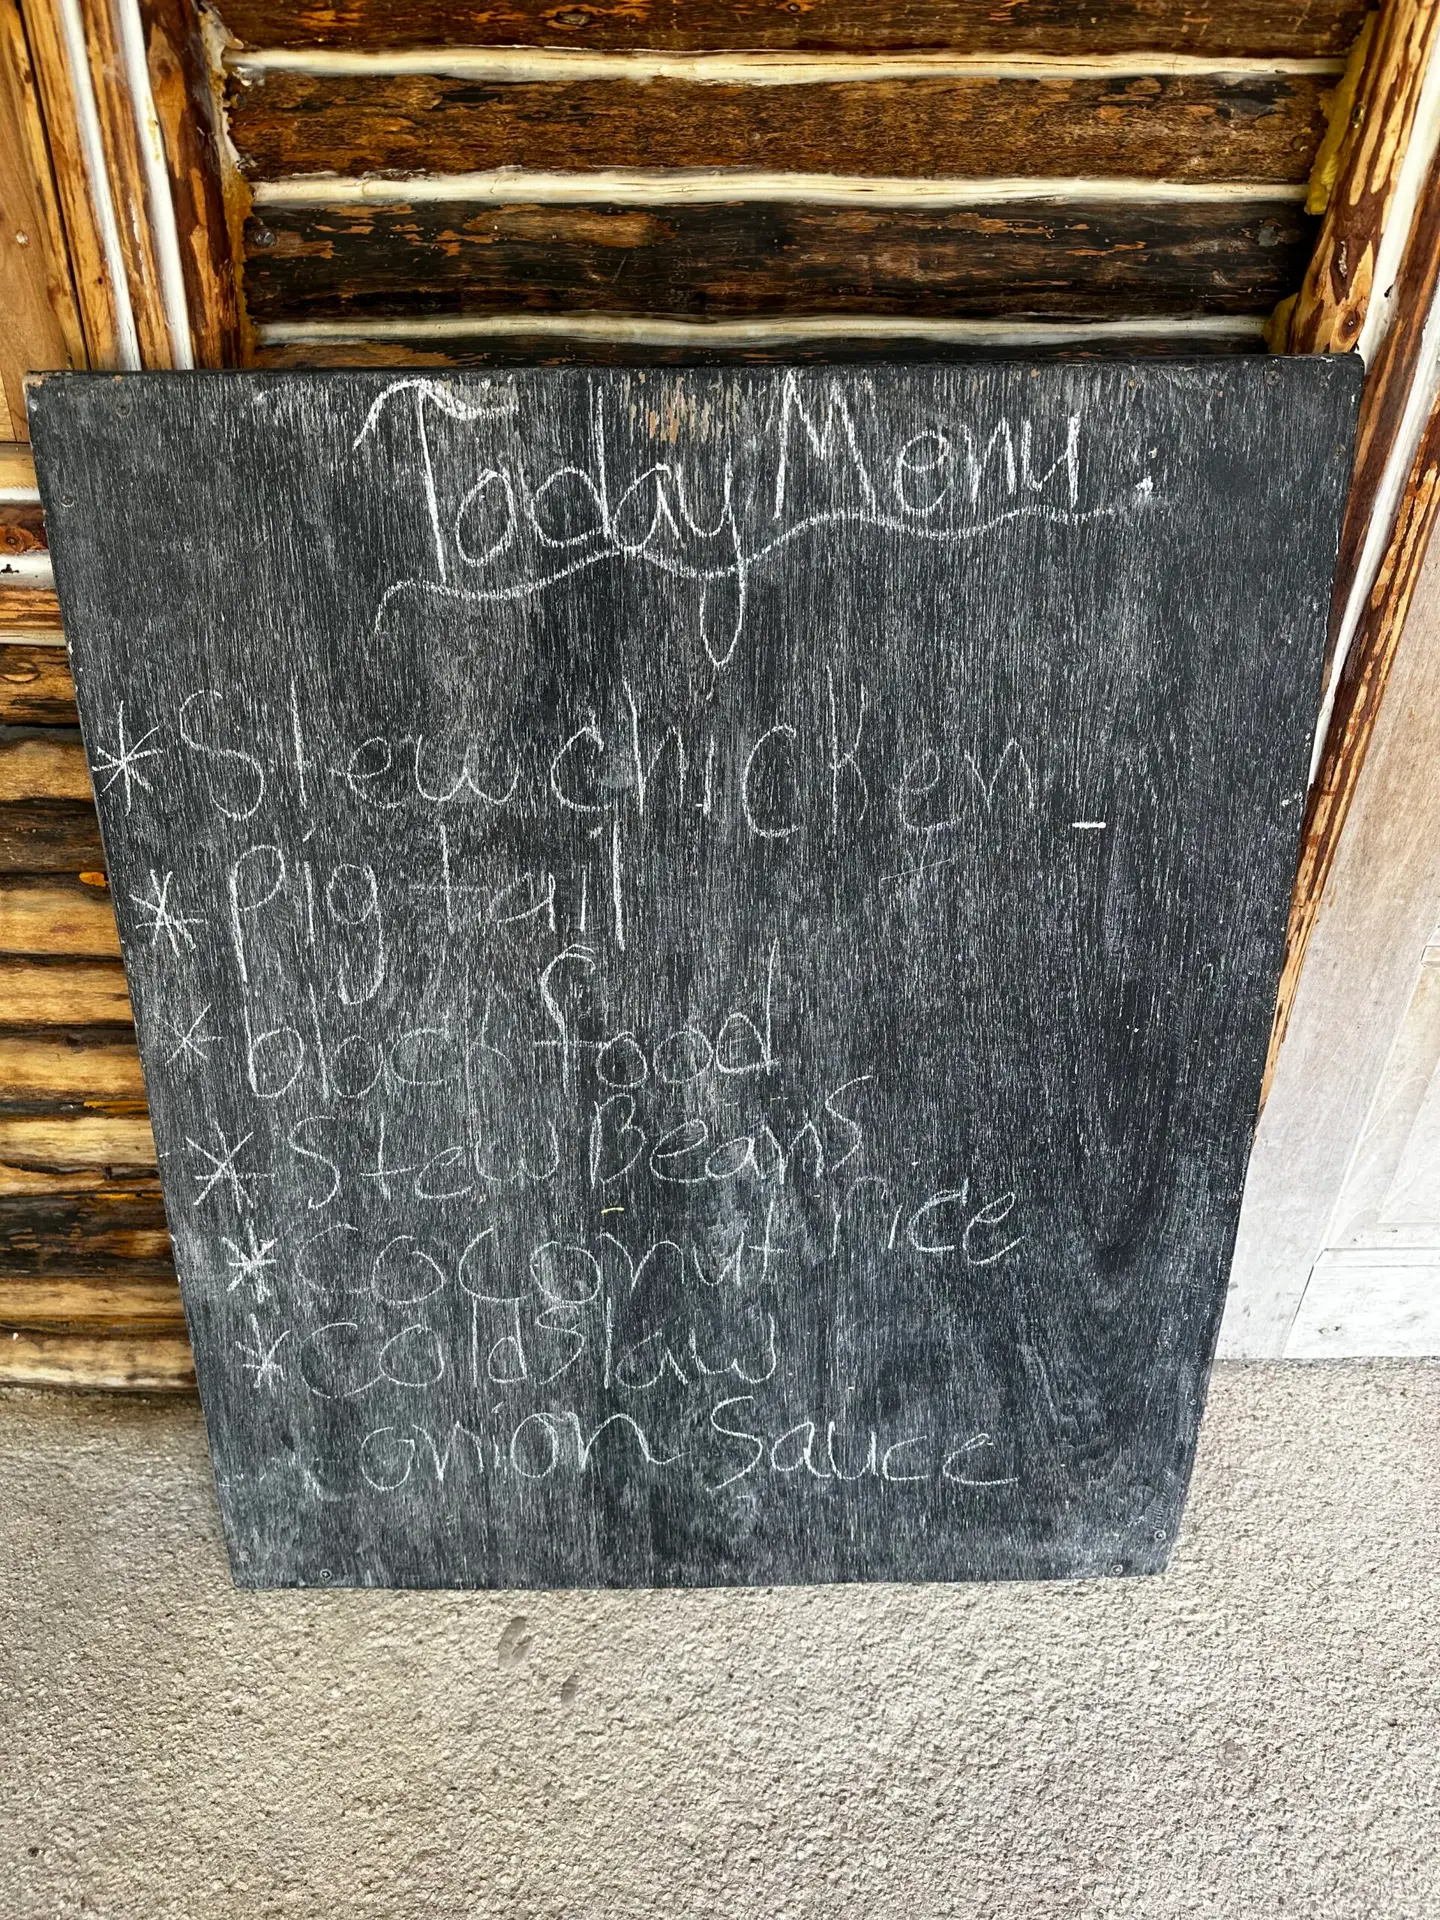 Today Menu.
* Stew chicken
* pig tail
* black food
* Stew Beans
* coconut rice
* coldslaw
onion Sauce